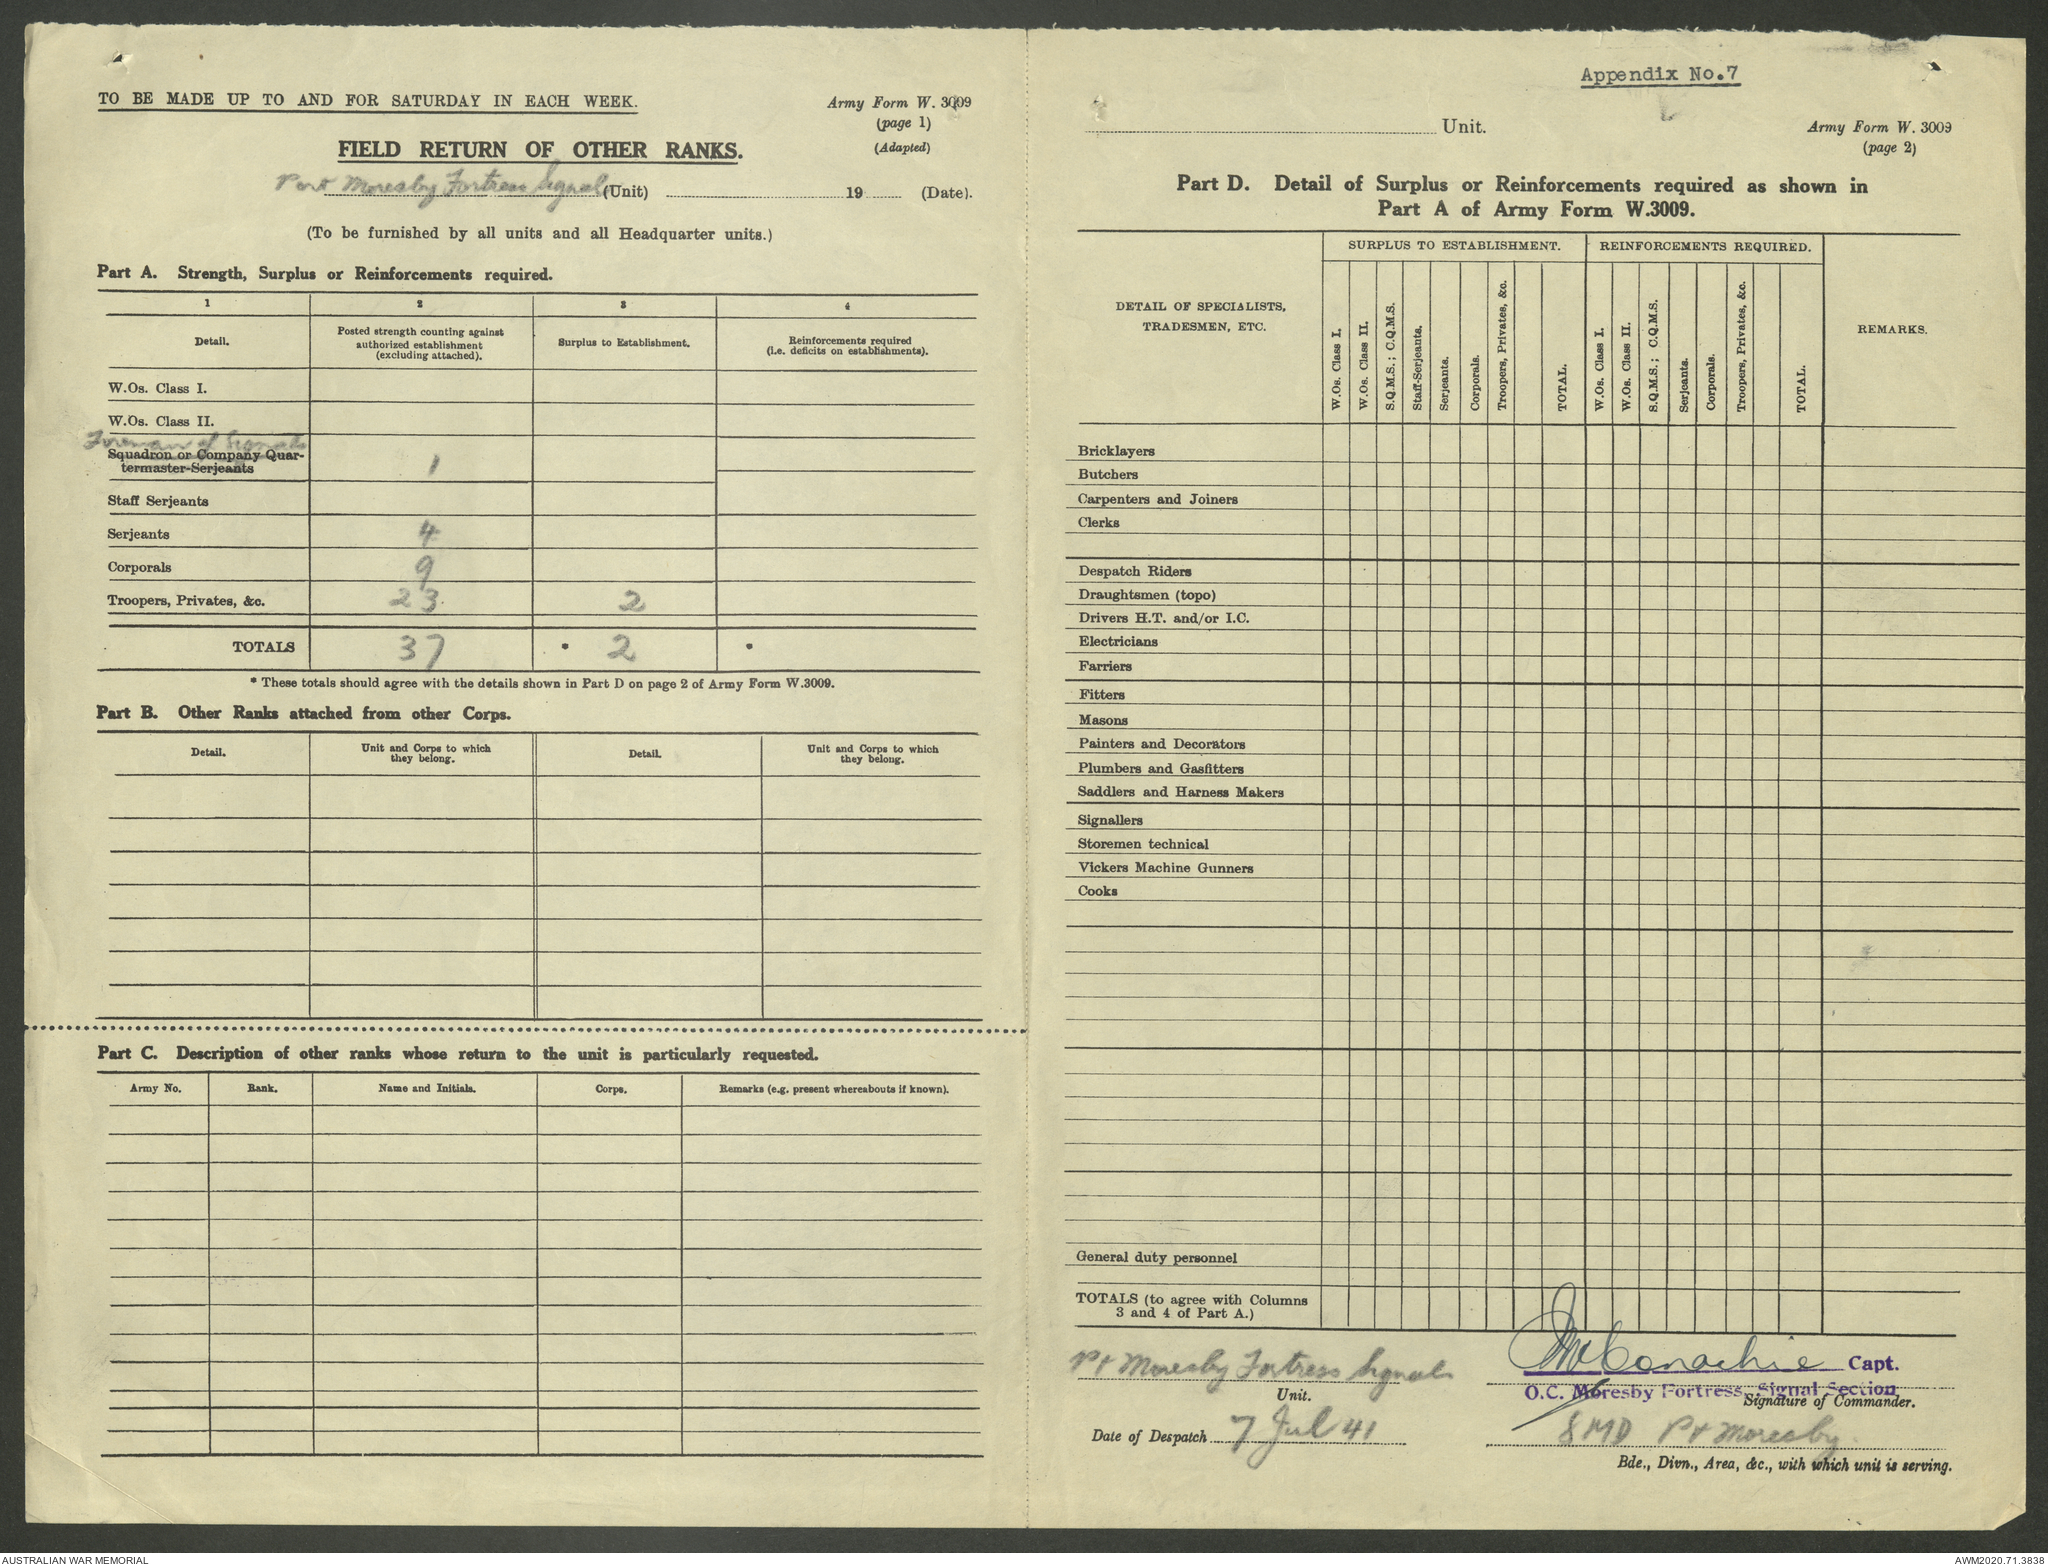 TO BE MADE UP TO AND FOR SATURDAY IN EACH WEEK.
Army Form W. 3009
(page 1)
(Adapted)
FIELD RETURN OF OTHER RANKS.
Port Moresby Fortress Signals (Unit) 19 (Date).
(To be furnished by all units and all Headquarter units.)
Part A. Strength, Surplus or Reinforcements required.
1 2 3 4
Detail. Posted strength counting against authorized establishment (excluding attached). Surplus to Establishment. Reinforcements required (i.e. deficits on establishments).
W.Os. Class I.
W.Os. Class II.
Foreman of Signals
Squadron or Company Quar-
termaster-Serjeants 1
Staff Serjeants
Serjeants 4
Corporals 9
Troopers, Privates, &c. 23 2
TOTALS 37 * 2 *
* These totals should agree with the details shown in Part D on page 2 of Army Form W.3009.
Part B. Other Ranks attached from other Corps.
Detail. Unit and Corps to which they belong. Detail. Unit and Corps to which they belong.
Part C. Description of other ranks whose return to the unit is particularly requested.
Army No. Rank. Name and Initials. Corps. Remarks (e.g. present whereabouts if known).
Appendix No.7
Unit.
Army Form W. 3009
(page 2)
Part D. Detail of Surplus or Reinforcements required as shown in
Part A of Army Form W.3009.
DETAIL OF SPECIALISTS,
TRADESMEN, ETC.
SURPLUS TO ESTABLISHMENT.
W.Os. Class I.
W.Os. Class II.
S.Q.M.S.; C.Q.M.S.
Staff-Serjeants.
Serjeants.
Corporals.
Troopers, Privates, &c.
TOTAL.
REINFORCEMENTS REQUIRED.
W.Os. Class I.
W.Os. Class II.
S.Q.M.S.; C.Q.M.S.
Serjeants.
Corporals.
Troopers, Privates, &c.
TOTAL.
REMARKS.
Bricklayers
Butchers
Carpenters and Joiners
Clerks
Despatch Riders
Draughtsmen (topo)
Drivers H.T. and/or I.C.
Electricians
Farriers
Fitters
Masons
Painters and Decorators
Plumbers and Gasfitters
Saddlers and Harness Makers
Signallers
Storemen technical
Vickers Machine Gunners
Cooks
General duty personnel
TOTALS (to agree with Columns
3 and 4 of Part A.)
Pt Moresby Fortress Signals
Unit.
Date of Despatch 7 Jul 41
McConachie Capt.
O.C. Moresby Fortress Signal Section
Signature of Commander.
8 MD Pt Moresby.
Bde., Divn., Area, &c., with which unit is serving.
AUSTRALIAN WAR MEMORIAL
AWM2020.71.3838